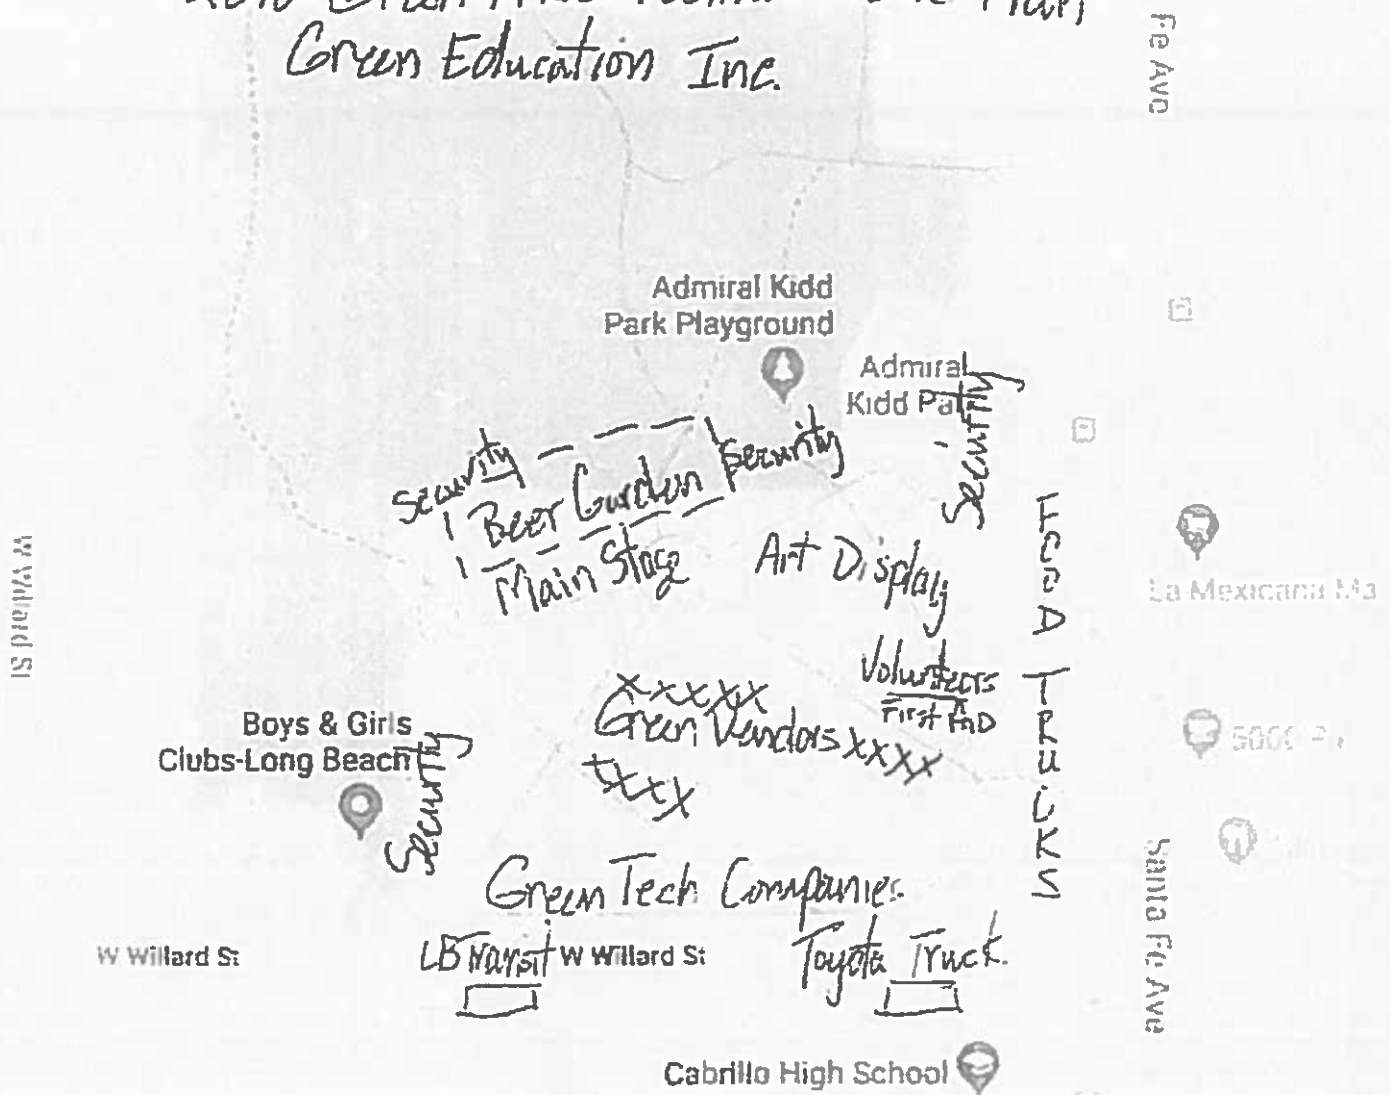 Green Education Inc.
Fe Ave
Admiral Kidd
Park Playground
Admiral
Kidd Park
Security
Security
Security
Beer Garden
Main Stage
Art Display
FOOD TRUCKS
La Mexicana Ma
W Willard St
Volunteers
First AID
xxxxx
Green Vendors xxxx
xxxx
Boys & Girls
Clubs-Long Beach
Security
Green Tech Companies
Santa Fe Ave
W Willard St
LB Transit
W Willard St
Toyota Truck
Cabrillo High School